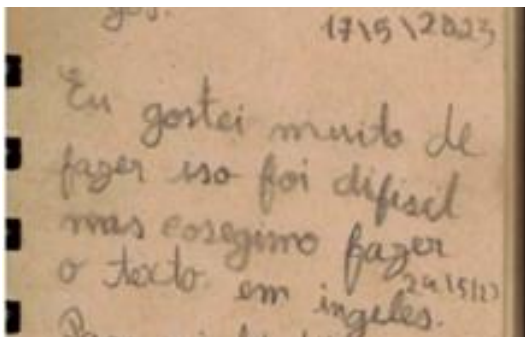 gos.
17\5\2023
Eu gostei muito de
fazer iso foi difisil
mas cosegimo fazer
o texto em ingeles.
24\5\23